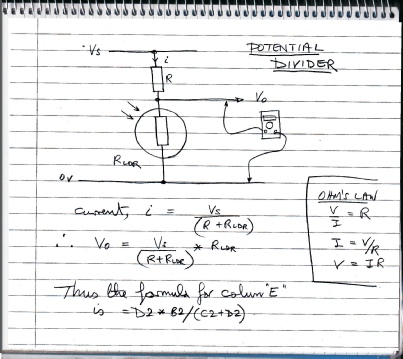 POTENTIAL
DIVIDER
Vs
i
R
Vo
RLDR
0V
current, i = Vs/(R + RLDR)
∴ Vo = Vs/(R+RLDR) * RLDR
OHM'S LAW
V/I = R
I = V/R
V = IR
Thus the formula for column "E"
is =D2*B2/(C2+D2)